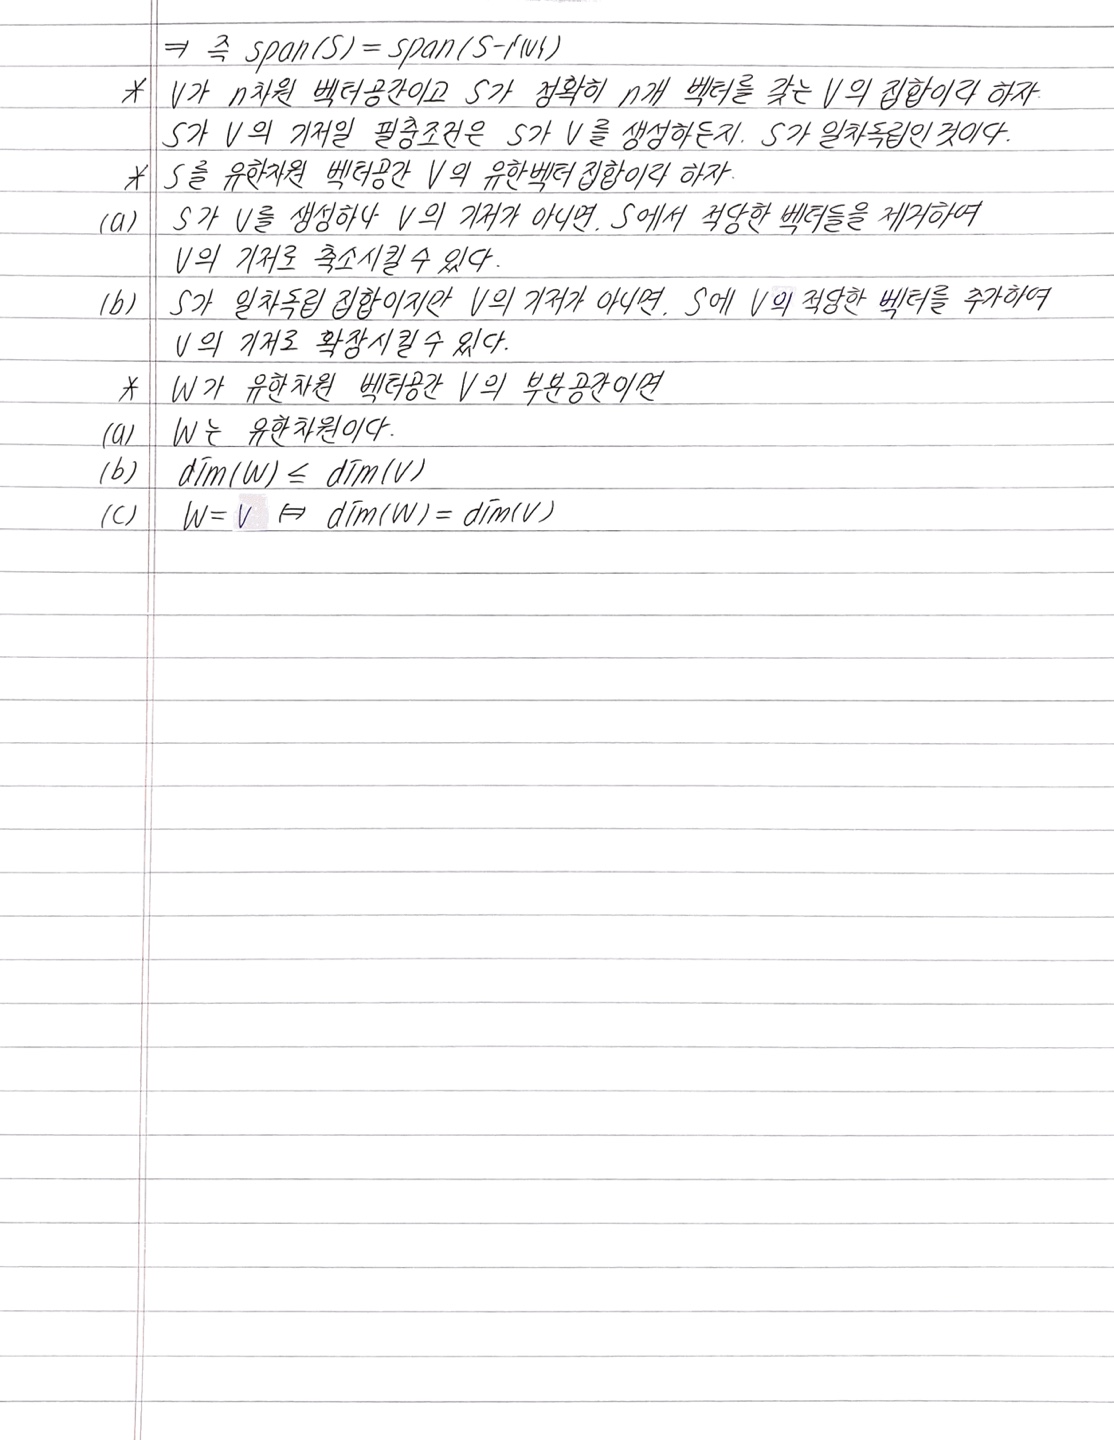 ⇒ 즉 span(S) = span(S-{v})
* V가 n차원 벡터공간이고 S가 정확히 n개 벡터를 갖는 V의 집합이라 하자.
S가 V의 기저일 필충조건은 S가 V를 생성하든지. S가 일차독립인 것이다.
* S를 유한차원 벡터공간 V의 유한벡터 집합이라 하자.
(a) S가 V를 생성하나 V의 기저가 아니면, S에서 적당한 벡터들을 제거하여
V의 기저로 축소시킬 수 있다.
(b) S가 일차독립 집합이지만 V의 기저가 아니면, S에 V의 적당한 벡터를 추가하여
V의 기저로 확장시킬 수 있다.
* W가 유한차원 벡터공간 V의 부분공간이면
(a) W는 유한차원이다.
(b) dim(W) ≤ dim(V)
(c) W = V ⇔ dim(W) = dim(V)